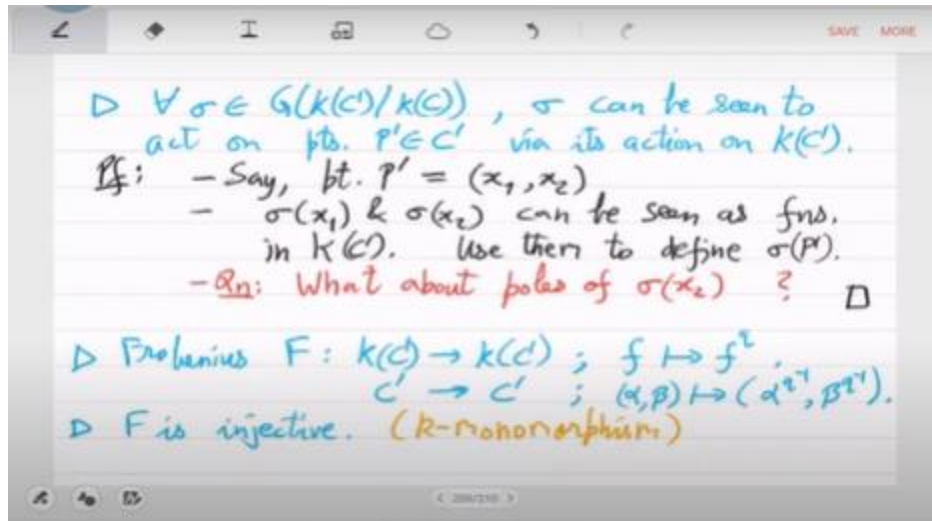 SAVE MORE
▷ ∀ σ ∈ G(k(C')/k(C)) , σ can be seen to
act on pts. P' ∈ C' via its action on k(C').
Pf: - Say, pt. P' = (x₁, x₂)
- σ(x₁) & σ(x₂) can be seen as fns.
in k(C'). Use them to define σ(P').
- Qn: What about poles of σ(x₂) ? □
▷ Frobenius F : k(C') → k(C') ; f ↦ f^q .
C' → C' ; (α, β) ↦ (α^{q^{-1}}, β^{q^{-1}}).
▷ F is injective. (k-monomorphism)